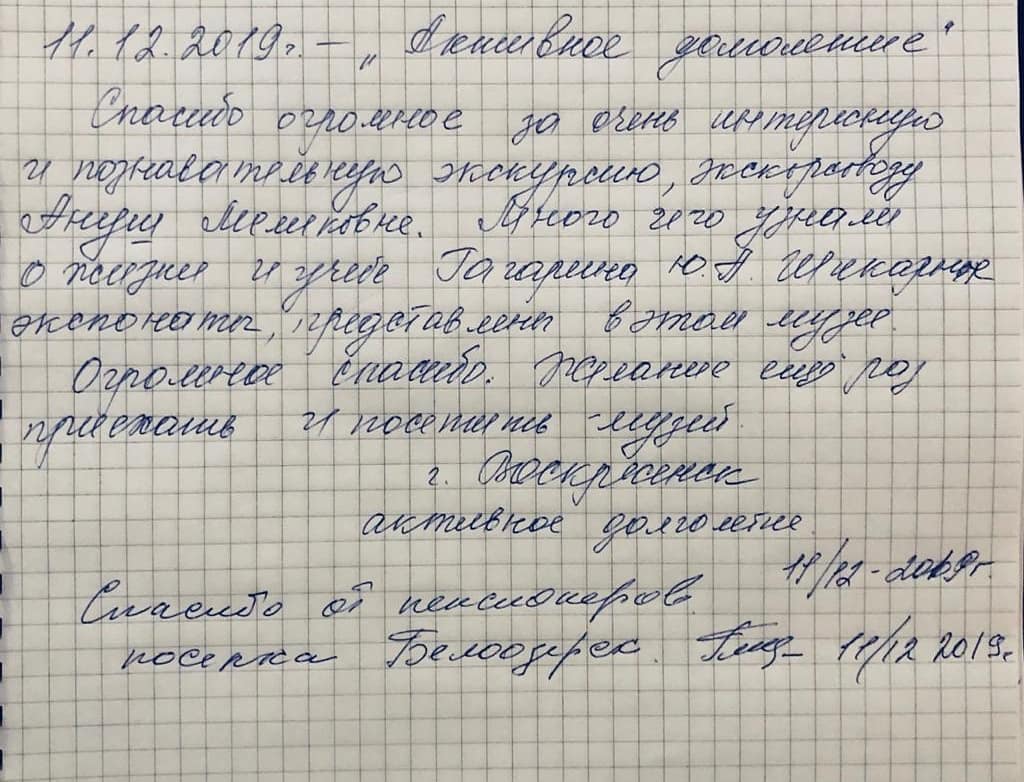 11.12.2019г. – „Активное долголетие“
Спасибо огромное за очень интересную
и познавательную экскурсию, экскурсоводу
Ануш Меликовне. Много чего узнали
о жизни и учебе Гагарина Ю.А. Шикарные
экспонаты, представлены в этом музее.
Огромное спасибо. Желание ещё раз
приехать и посетить музей.
г. Воскресенск
активное долголетие.
11/12-2019г.
Спасибо от пенсионеров
поселка Белоозерск. 11/12 2019г